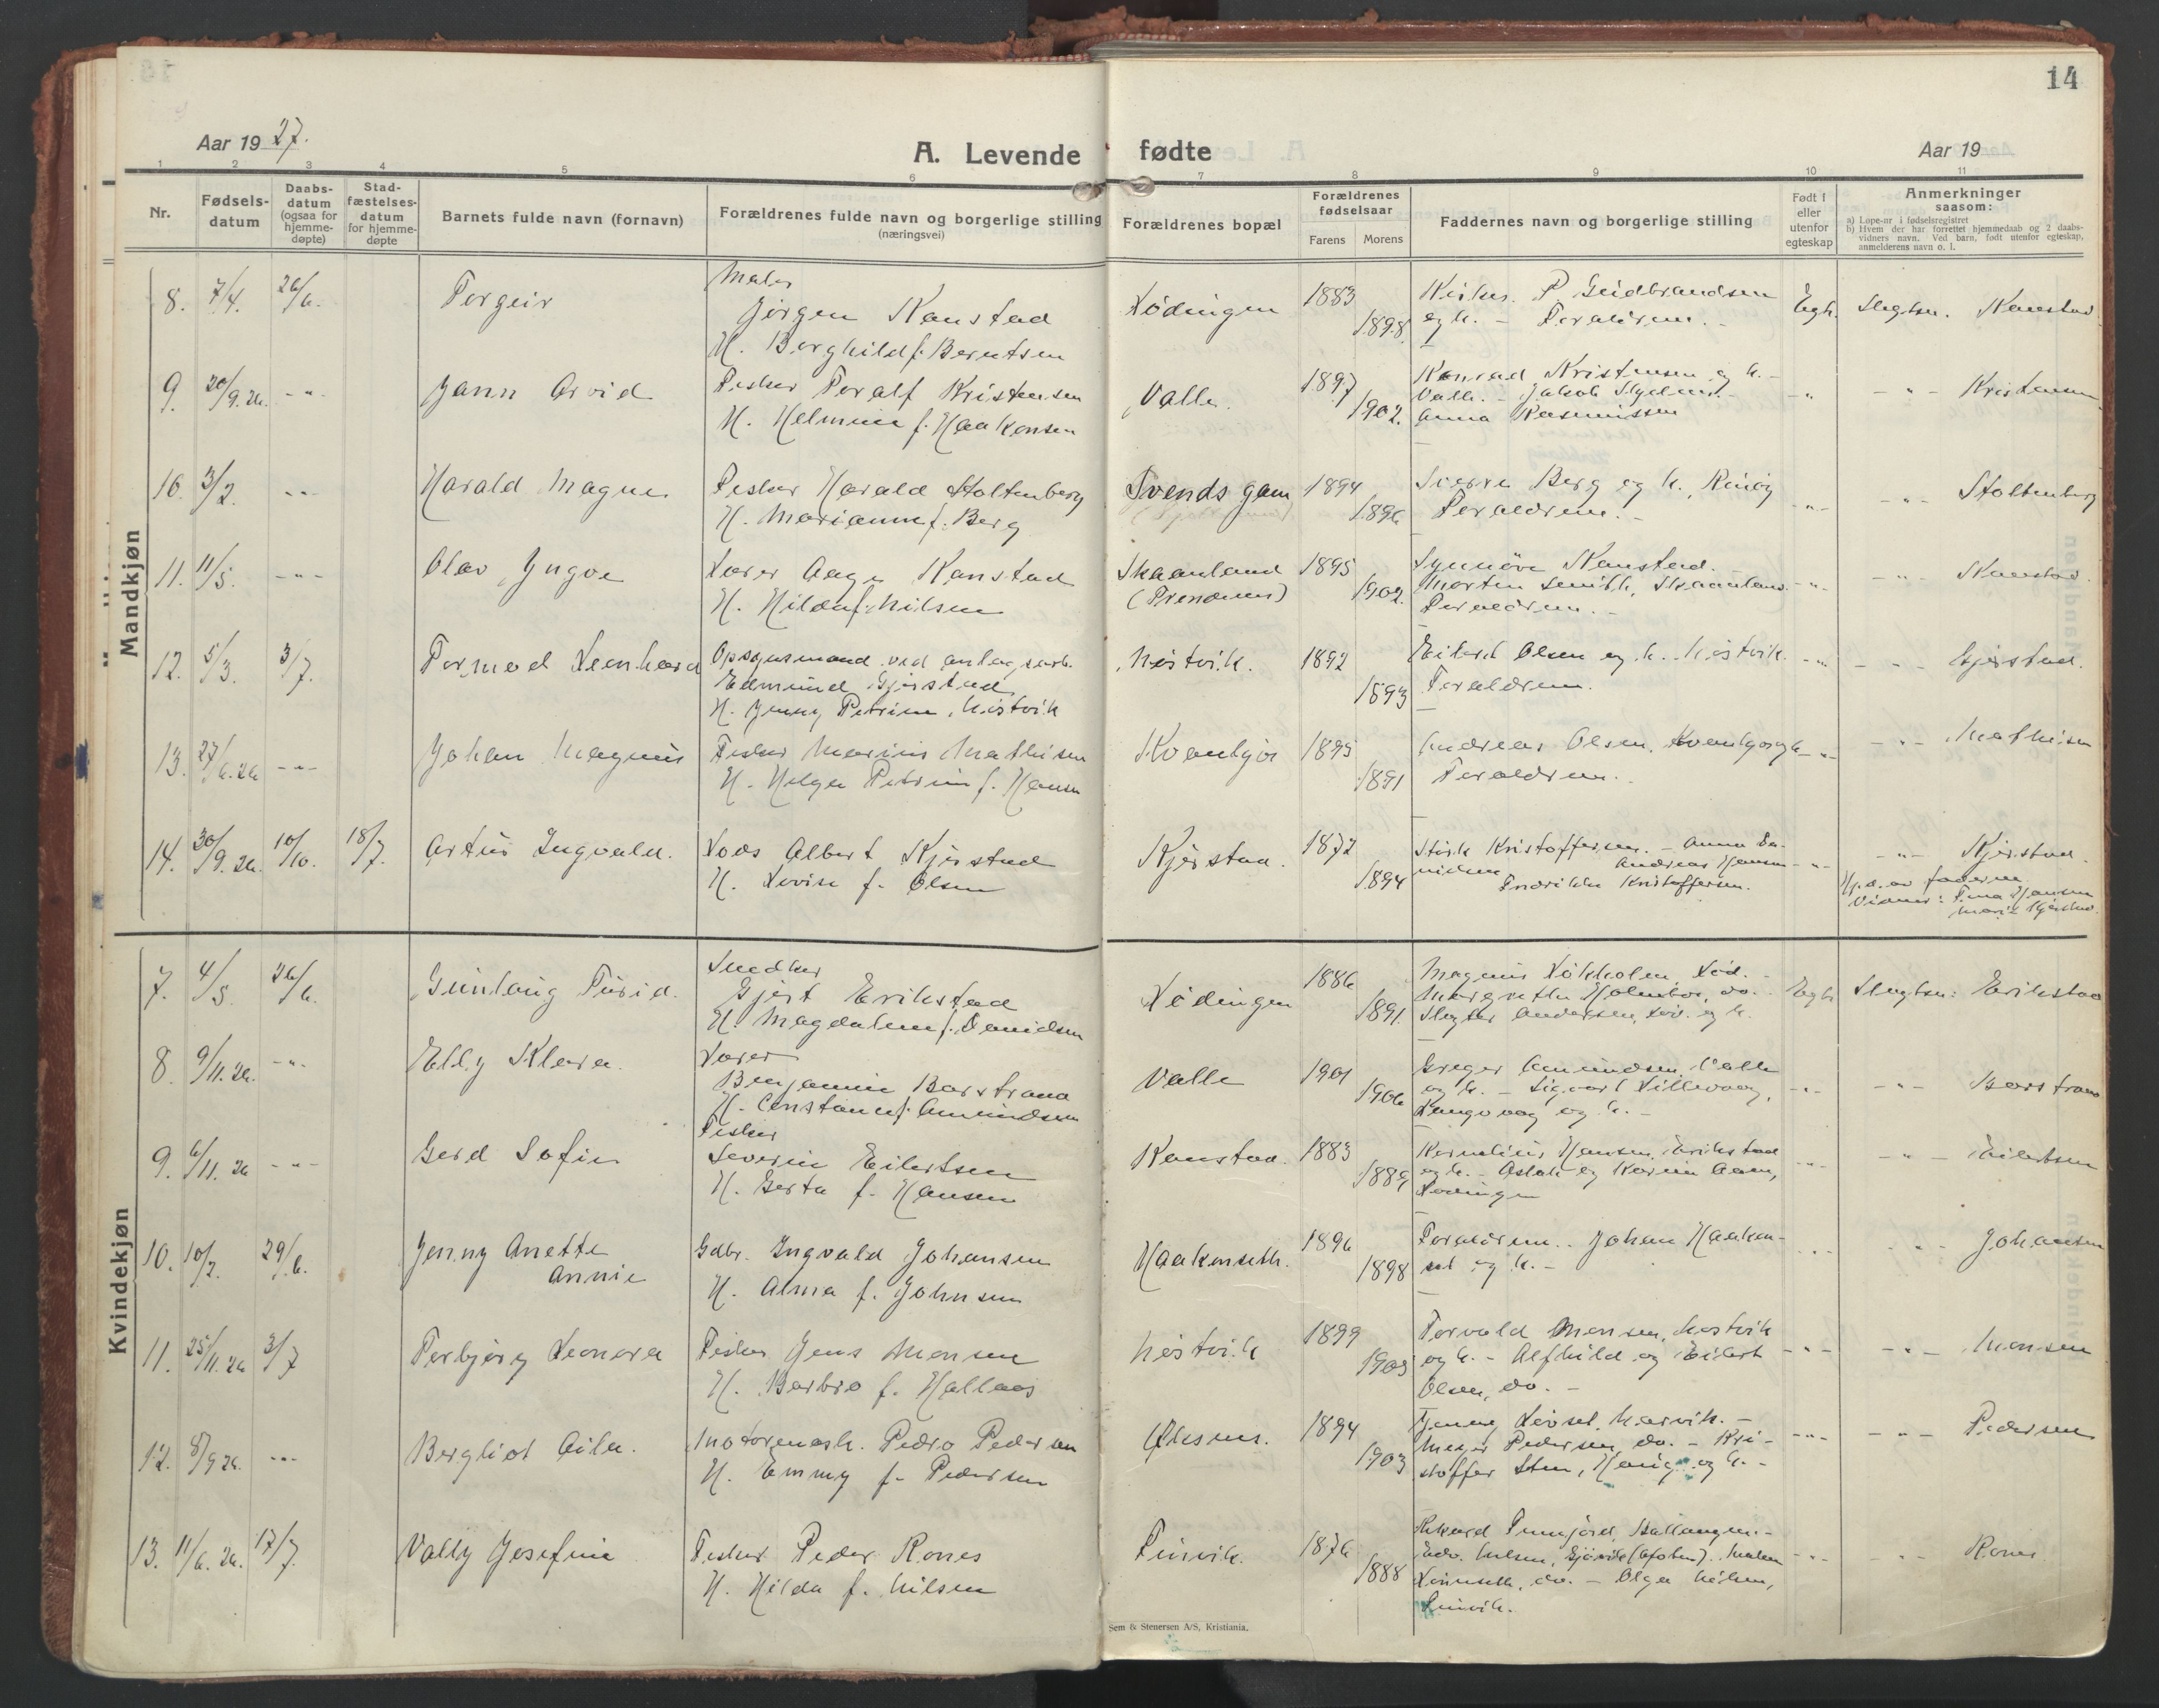 14
Aar 1927.
A. Levende fødte
Aar 19
1 2 3 4 5 6 7 8 9 10 11
Nr.
Fødsels-datum
Daabs-datum (ogsaa for hjemme-døpte)
Stad-fæstelses-datum for hjemme-døpte
Barnets fulde navn (fornavn)
Forældrenes fulde navn og borgerlige stilling (næringsvei)
Forældrenes bopæl
Forældrenes fødselsaar
Farens Morens
Faddernes navn og borgerlige stilling
Født i eller utenfor egteskap
Anmerkninger saasom:
a) Løpe-nr i fødselsregistret
b) Hvem der har forrettet hjemmedaab og 2 daabs-vidners navn. Ved barn, født utenfor egteskap, anmelderens navn o. l.
Mandkjøn
8. 7/4. 26/6. Torgeir
Maler
Jørgen Kanstad
H. Borghild f. Berntsen
Lødingen 1883 1898.
P. Guldbrandsen
og h. - Foreldrene. -
Egt. Slegtsn. Kanstad
9. 20/9.26. -"- Jann Arvid
Fisker Toralf Kristensen
H. Helmine f. Haakonsen
Valle. 1897 1902.
Konrad Kristensen og h. -
Valle. - Jakob
Anna Rasmussen
-"- -"- Kristensen
10. 3/2. -"- Harald Magne
Fisker Harald Stoltenberg
H. Marianne f. Berg
Svendsgam 1894 1896
Sverre Berg og h., Rinøy
Foreldrene. -
-"- -"- Stoltenberg
11. 11/5. -"- Olav Yngve
Lærer Aage Kanstad
H. Hilda f. Nilsen
Skaanland 1895 1902.
Synnøve Kanstad. -
Morten Smith, Skaanland
Foreldrene. -
-"- -"- Kanstad.
12. 5/3. 3/7. Tormod Leonhard
Opsynsmand ved anlegsarb.
Edmund Gjerstad
H. Jenny Petrine, Nestvik
Nestvik. 1892 1893
Eilert Olsen og h. Nestvik.
Foreldrene.
-"- -"- Gjerstad.
13. 27/6.26 -"- Johan Magnus
Fisker Marius Mathisen
H. Helga Petrine f. Hansen
Kvantjor 1895 1891
Andreas Olsen, og h.
Foreldrene.
-"- -"- Mathisen
14. 30/9.26. 10/10. 18/7. Artur Ingvald.
Lods Albert Kjerstad
H. Lovise f. Olsen
Kjerstad. 1872 1894
Kristoffersen. - Anna Da-
nielsen Andreas Hansen
Kristoffersen.
-"- -"- Kjerstad.
Hj.d. av faderen
Vidner: Tina Hansen
Marie Kjerstad.
Kvindekjøn
7. 4/5. 26/6. Gunlaug Turid.
Snedker
Gjert Erikstad
H. Magdalene f. Danielsen
Lødingen 1886 1891.
Magnus Løkholm, Lød. -
Margrethe Holmbo, do. -
Andersen, Lød. og h.
Egt. Slegtsn: Erikstad
8. 9/11.26. -"- Elly Klara.
Lærer
Benjamin Barstrand
H. Constance f. Amundsen
Valle 1901 1906
Greger Amundsen, Valle
og h. - Sigvart Lillevaag,
og h. -
-"- -"- Barstrand
9. 6/11.26 -"- Gerd Sofie
Fisker
Severin Eilertsen
H. Gerta f. Hansen
Kanstad. 1883 1889
Kornelius Hansen, Erikstad
og h. - Aslak og Karin Aam,
Lødingen
-"- -"- Eilertsen
10. 10/2. 29/6. Jenny Anette
Annie
Gdbr. Ingvald Johansen
H. Alma f. Johnsen
Haakonseth. 1896 1898
Foreldrene. - Johan Haakon-
set og h. -
-"- -"- Johansen
11. 25/11.26 3/7 Torbjørg Leonora
Fisker Jens Monsen
H. Barbro f. Hallaas
Nestvik 1899 1905
Torvald Monsen, Nestvik
og h. - Alfhild og Eilert
Olsen, do. -
-"- -"- Monsen
12. 8/9.26. -"- Bergliot Aila.
Motoremask. Pedro Pedersen
H. Emmy f. Pedersen
1894 1903
Narvik. -
Pedersen, do. - Kri-
stoffer Sten, og h. -
-"- -"- Pedersen
13. 11/6.26. 17/7. Vally Josefine
Fisker Peder Rones
H. Hilda f. Nilsen
Finvik. 1876 1888
Rikard Ballangen. -
Edv. Nilsen, (Ofoten).
do. - Olga Nilsen,
Finvik.
-"- -"- Rones
Sem & Stenersen A/S, Kristiania.